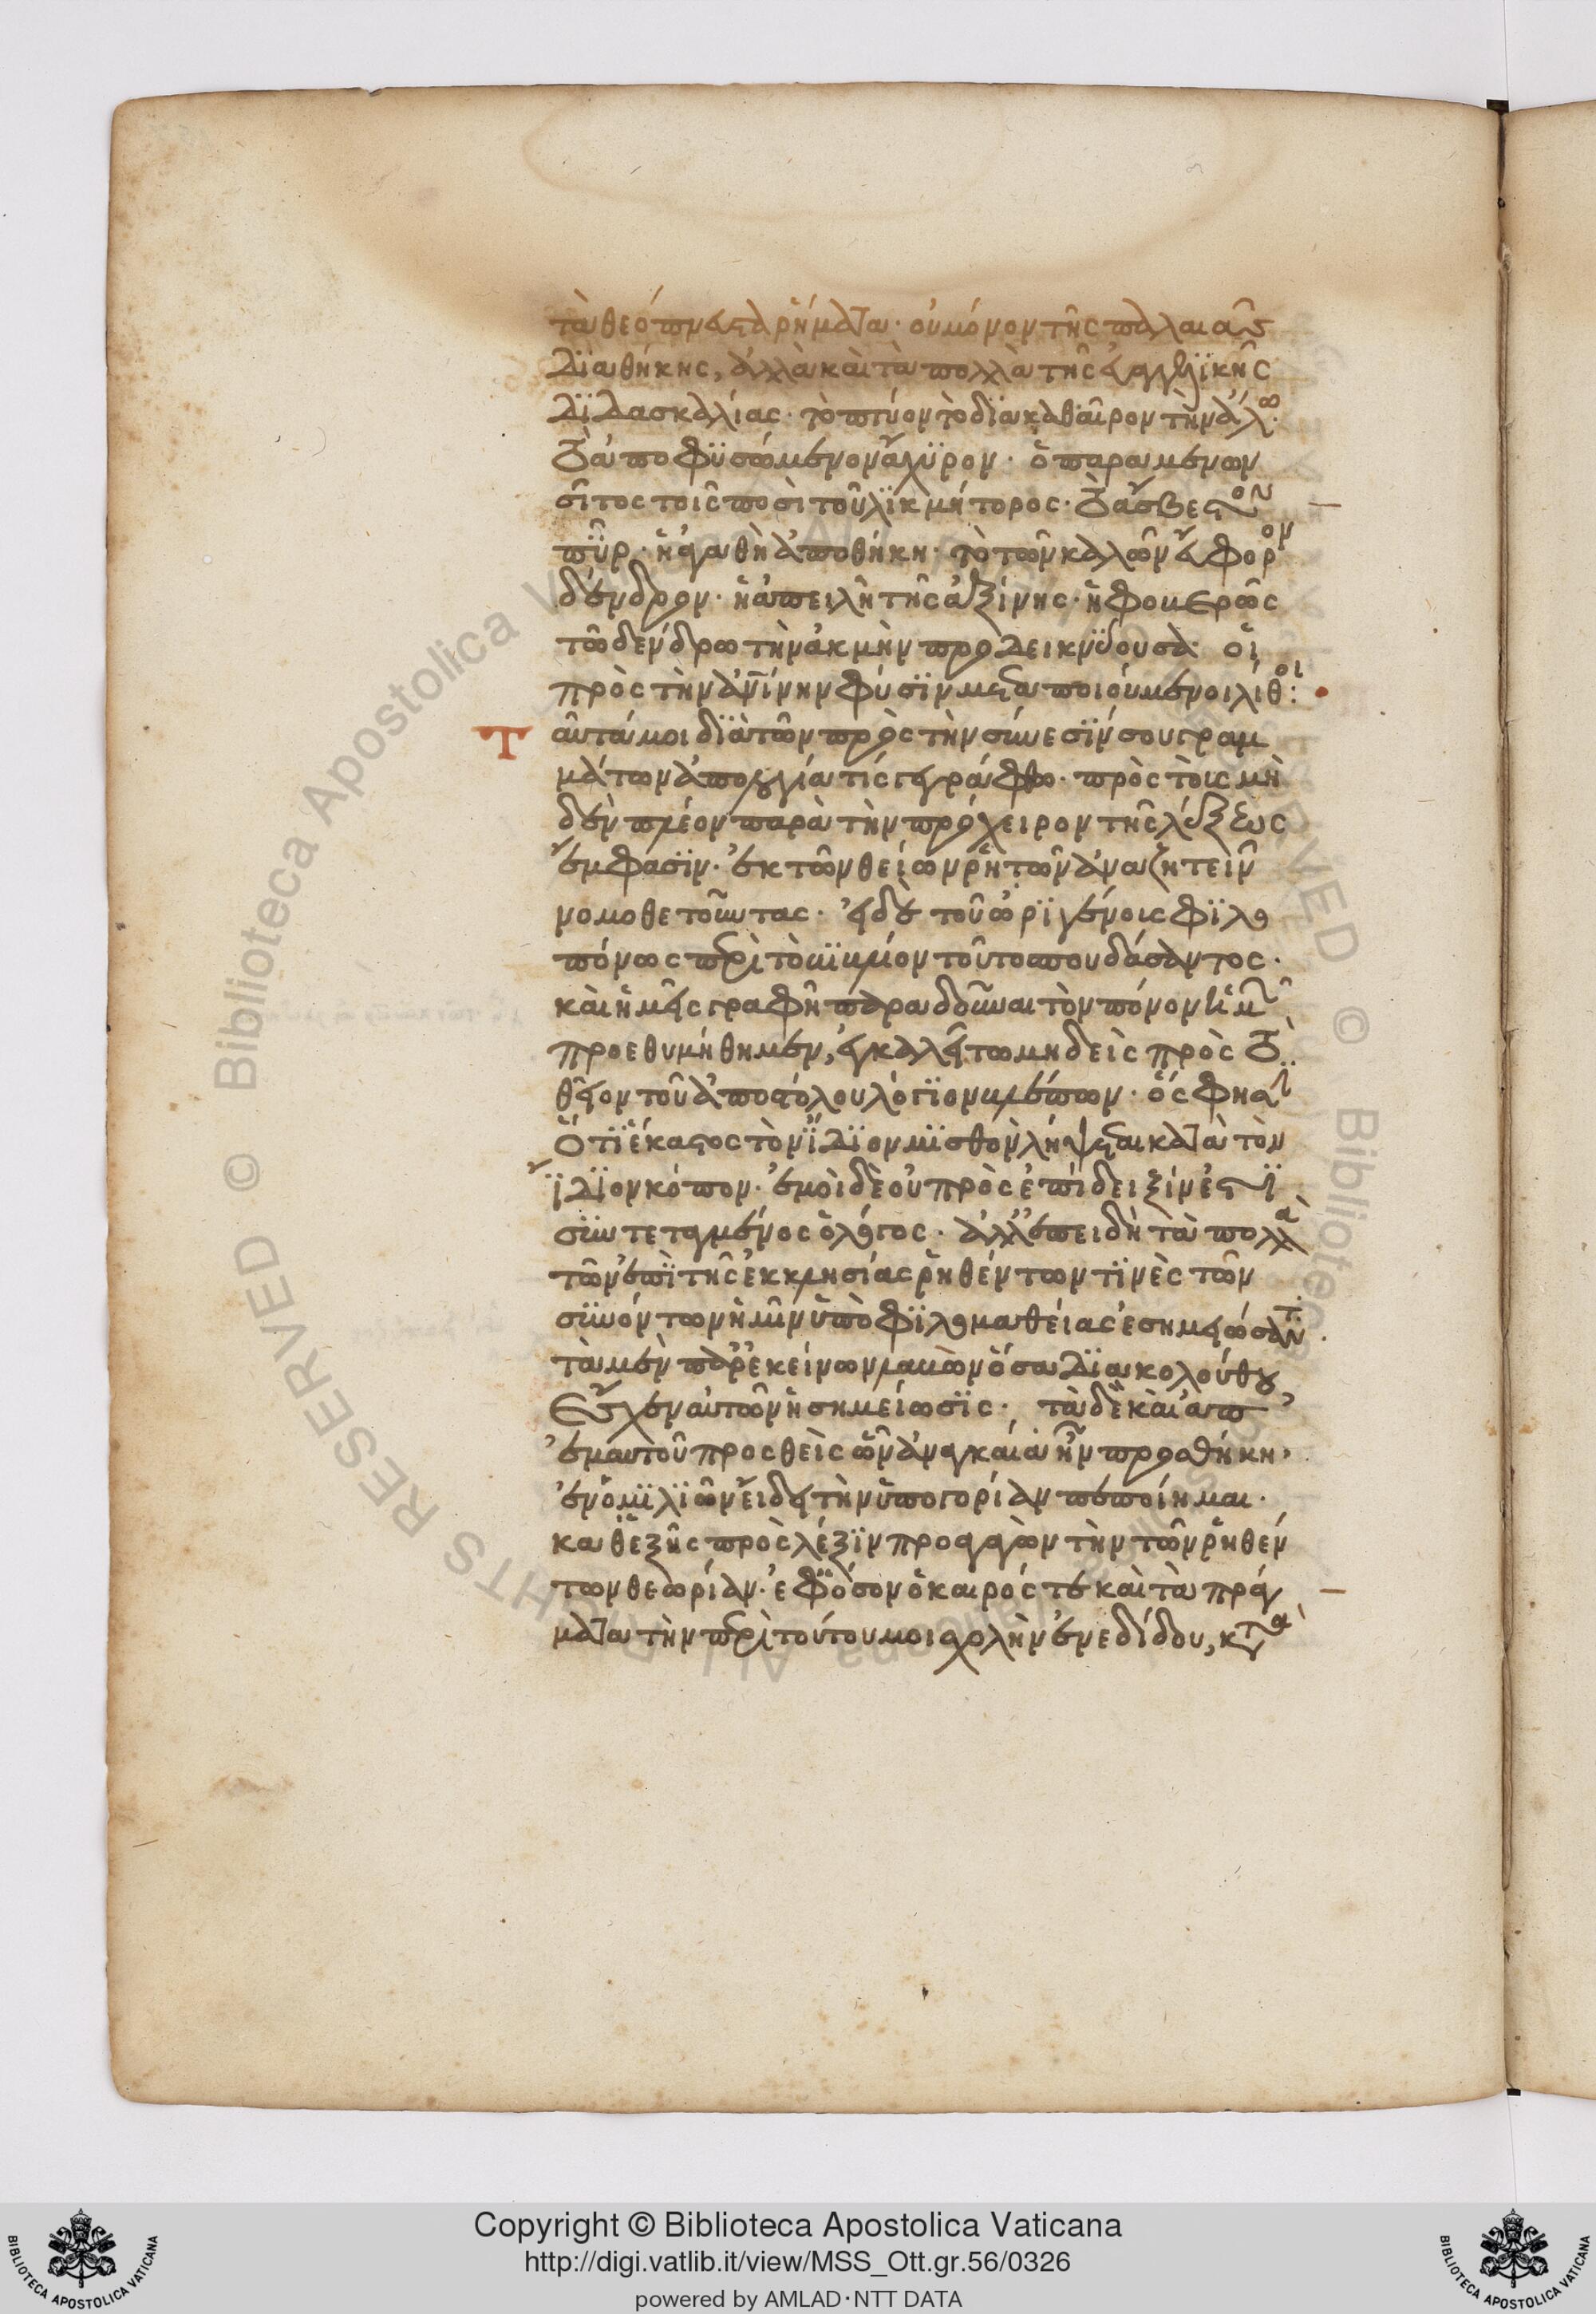 τὰ θεόπνευστα ῥήματα· οὐ μόνον τῆς παλαιᾶς
διαθήκης, ἀλλὰ καὶ τὰ πολλὰ τῆς εὐαγγελικῆς
διδασκαλίας· τὸ πτύον τὸ διακαθαῖρον τὴν ἅλω·
τὸ ἀποφυσώμενον ἄχυρον· ὁ παραμένων
σῖτος τοῖς ποσὶ τοῦ λικμήτορος· τὸ ἄσβεστον
πῦρ· ἡ ἀγαθὴ ἀποθήκη· τὸ τῶν καλῶν εὔφορον
δένδρον· ἡ ἀπειλὴ τῆς ἀξίνης· ἡ φοβερῶς
τῷ δένδρῳ τὴν ἀκμὴν προδεικνύουσα· οἱ
πρὸς τὴν ἀνίνην φύσιν μεταποιούμενοι λίθοι:
Ταῦτά μοι διὰ τῶν πρὸς τὴν σύνεσίν σου γραμ
μάτων ἀπολογία τίς γεγράφθω· πρὸς τοὺς μη
δὲν πλέον παρὰ τὴν πρόχειρον τῆς λέξεως
ἔμφασιν· ἐκ τῶν θείων ῥητῶν ἀναζητεῖν
νομοθετοῦντας· εἰ δὲ τοῦ ὠριγένους φιλο
πόνως περὶ τὸ βιβλίον τοῦτο σπουδάσαντος·
καὶ ἡμεῖς γραφῇ παραδοῦναι τὸν πόνον ἡμῶν
προεθυμήθημεν, ἐγκαλείτω μηδεὶς πρὸς τὸ
θεῖον τοῦ ἀποστόλου λόγιον βλέπων· ὅς φησιν
Ὅτι ἕκαστος τὸν ἴδιον μισθὸν λήψεται κατὰ τὸν
ἴδιον κόπον· ἐμοὶ δὲ οὐ πρὸς ἐπίδειξίν ἐστι
συντεταγμένος ὁ λόγος· ἀλλ' ἐπειδὴ τὰ πολλὰ
τῶν ἐπὶ τῆς ἐκκλησίας ῥηθέντων τινὲς τῶν
συνόντων ἡμῖν ὑπὸ φιλομαθείας ἐσημειώσαντο.
τὰ μὲν παρ' ἐκείνων λαβὼν ὅσα δι' ἀκολούθου
Εἶχεν αὐτῶν ἡ σημείωσις· τὰ δὲ καὶ ἀπ'
ἐμαυτοῦ προσθεὶς ὧν ἀναγκαία ἦν προσθήκη,
ἐν ὁμιλιῶν εἴδει τὴν ὑπηγορίαν πεποίημαι·
καθεξῆς πρὸς λέξιν προαγαγὼν τὴν τῶν ῥηθέν
των θεωρίαν· ἐφ' ὅσον ὁ καιρός τε καὶ τὰ πράγ
ματα τὴν περὶ τούτου μοι σχολὴν ἐνεδίδου, κατὰ
Copyright © Biblioteca Apostolica Vaticana
http://digi.vatlib.it/view/MSS_Ott.gr.56/0326
powered by AMLAD·NTT DATA